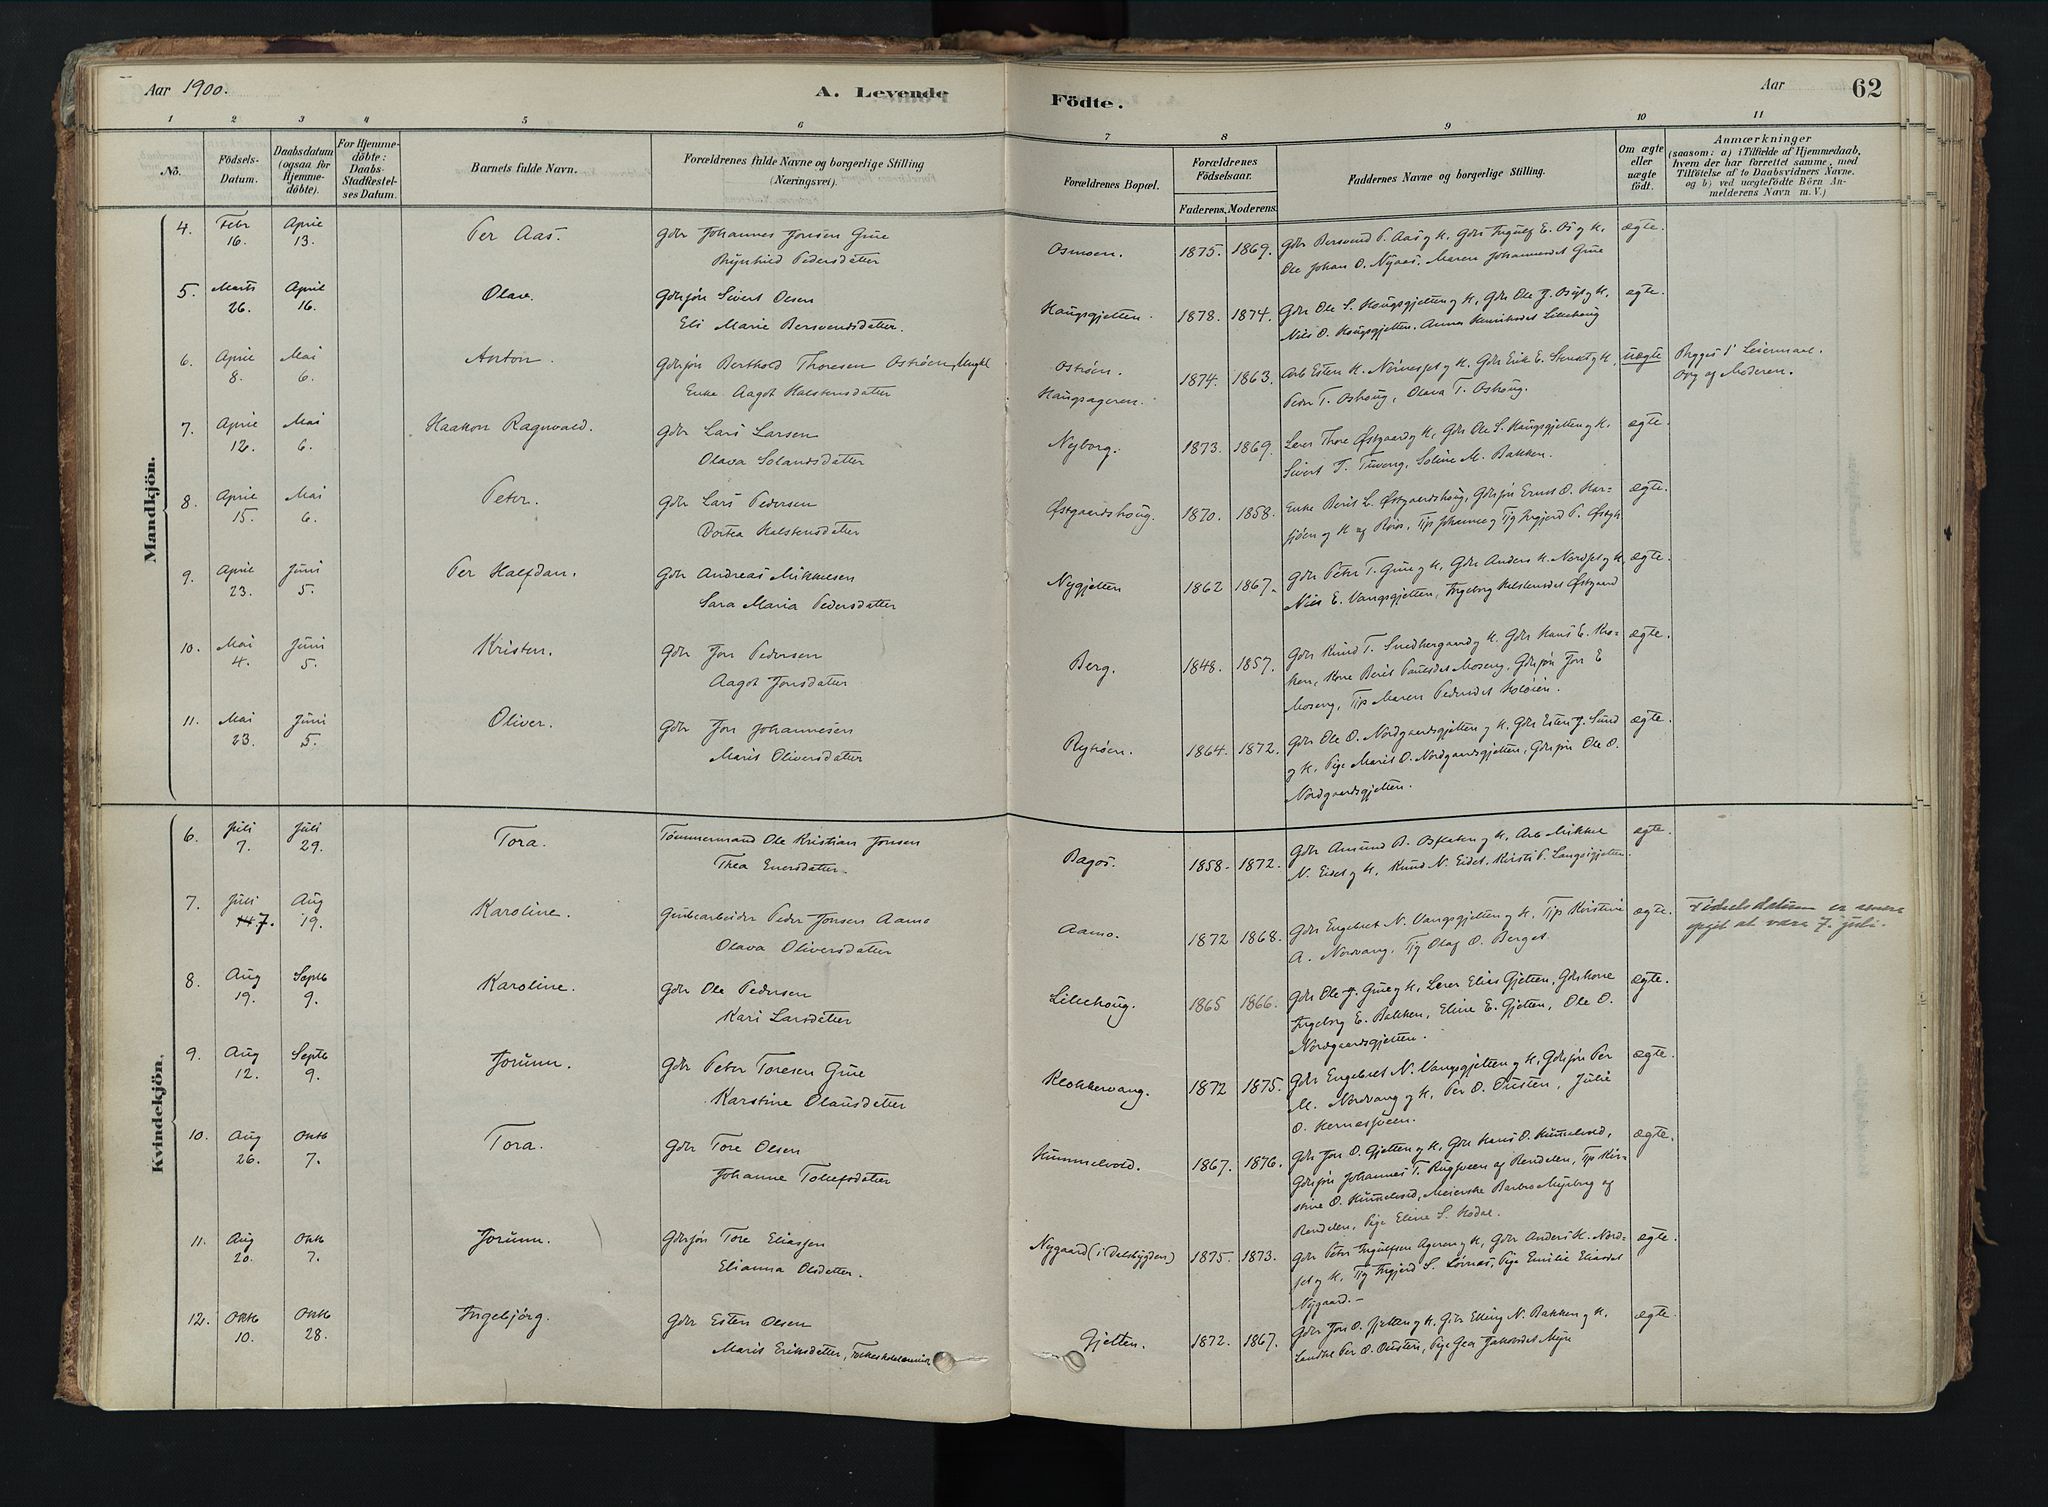 Aar 1900.
A. Levende
Födte.
Aar
62
1 2 3 4 5 6 7 8 9 10 11
No.
Födsels-Datum.
Daabsdatum (ogsaa for Hjemmedöbte).
For Hjemmedöbte: Daabs-Stadfæstelses Datum.
Barnets fulde Navn.
Forældrenes fulde Navne og borgerlige Stilling (Næringsvei).
Forældrenes Bopæl.
Forældrenes Födselsaar.
Faderens. Moderens.
Faddernes Navne og borgerlige Stilling.
Om ægte eller uægte födt.
Anmærkninger
(saasom: a) i Tilfælde af Hjemmedaab,
hvem der har forrettet samme, med
Tilföielse af to Daabsvidners Navne.
og b) ved uægtefödte Börn An-
melderens Navn m. V.)
Mandkjön.
4. Febr 16. April 13. Per Aas. Gdbr Johannes Jonsen Grue
Brynhild Pedersdatter
Osmoen. 1875. 1869. Gdbr Bersvend P. Aas y K, Gdbr Ingulf E. Os y K,
Ole Johan O. Nyaas, Maren Johannesdt Grue
ægte.
5. Marts 26. April 16. Olav. Gdbsjön Sivert Olsen
Eli Marie Bersvendsdatter.
Haugsgjetten. 1878. 1874. Gdbr Ole S. Haugsgjetten y K, Gdbr Ole J. y K,
Niels O. Haugsgjetten, Anna Henriksdt Lillehaug
ægte.
6. April 8. Mai 6. Anton. Gdbsjön Berthold Thoresen Oströen,
Enke Aagot Halstensdatter
Oströen. Haugsageren. 1874. 1863. Arb Esten H. y K, Gdbr Erik E. y K,
Peder T. Oshoug, Olava T. Oshoug.
uægte Begges 1ste Leiermaal.
Opg af Moderen.
7. April 12. Mai 6. Haakon Ragnvald. Gdbr Lars Larsen
Olava Solandsdatter
Nyborg. 1873. 1869. Lærer Thore Østgaard y K, Gdbr Ole S. Haugsgjetten y K,
Sivert T. Tuveng, Soline M. Bakken.
ægte.
8. April 15. Mai 6. Peter. Gdbr Lars Pedersen
Dortea Halstensdatter
Østgaardshoug. 1870. 1858. Enke Berit L. Østgaardshoug, Gdbsjön Ernst O. Har-
sjöen y K og Röros, Tjp Johanne og Tjg Ingjerd P. Østgh
ægte.
9. April 23. Juni 5. Per Halfdan. Gdbr Andreas Mikkelsen
Sara Maria Pedersdatter
Nygjetten 1862 1867. Gdbr Peter T. Grue y K, Gdbr Anders K. Nordset y K,
Niels E. Vangsgjetten, Ingeborg Halstensdt Østgaard
ægte.
10. Mai 4. Juni 5. Kristen. Gdbr Jon Pedersen
Aagot Jonsdatter
Berg. 1848. 1857. Gdbr Knud T. Sundbergaard y K. Gdbr Hans E. Kro-
ken, Kone Berit Paulsdt Moseng, Gdbsjön Jon E
Moseng, Tjp Maren Pedersdt Holöien.
ægte.
11. Mai 23. Juni 5. Oliver. Gdbr Jon Johannesen
Marit Oliversdatter
Rytröen. 1864. 1872. Gdbr Ole O. Nordgaardsgjetten y K, Gdbr Esten J. Sund
y K, Pige Marit O. Nordgaardsgjetten, Gdbsjön Ole O.
Nordgaardsgjetten.
ægte.
Kvindekjön.
6. Juli 7. Juli 29. Tora. Tømmermand Ole Kristian Jonsen
Thea Enersdatter.
Bagos. 1858. 1872. Gdbr Amund B. y K, Arb Mikkel
N. Eidet y K, Knud N. Eidet, Kirsti P. Langsgjetten.
ægte.
7. Juli 7. Aug 19. Karoline. Grubearbeider Peder Jonsen Aamo
Olava Oliversdatter
Aamo. 1872 1868. Gdbr Engebret N. Vangsgjetten y K, Tjp Kristine
A. Nordvang, Tjg Olaf O. Berget.
ægte. Födselsdatum er senere
opgit at være 7. juli.
8. Aug 19. Septb 9. Karoline. Gdbr Ole Pedersen
Kari Larsdatter
Lillehoug. 1865 1866. Gdbr Ole J. Grue y K, Lærer Elias Gjetten, Gdbrkone
Ingeborg E. Bakken, Eline E. Gjetten, Ole O.
Nordgaardsgjetten.
ægte.
9. Aug 12. Septb 9. Jorunn. Gdbr Peter Toresen Grue
Karstine Olausdatter
Klokkervang. 1872 1875. Gdbr Engebret N. Vangsgjetten y K, Gdbsjön Per
M. Nordvang y K, Per O. Ousten, Julie
O. Hernæsveen.
ægte.
10. Aug 26. Oktb 7. Tora. Gdbr Tore Olsen
Johanne Tollefsdatter
Hummelvold. 1867. 1876. Gdbr Jon O. Gjetten y K, Gdbr Hans O. Hummelvold,
Gdbsjön Johannes T. Rugsveen og Rendalen, Tjp Kir-
stine O. Hummelvold, Meierske Barbro Myrbrug og
Rendalen, Pige Eline S. Hodal.
ægte.
11. Aug 20. Oktb 7. Jorunn. Gdbsjön Tore Eliassen
Elianna Olsdatter.
Nygaard (i Dalsbygden) 1875. 1873. Gdbr Peter Ingulfsen Ageren y K, Gdbr Anders K. Nord-
set y K, Tjg Ingjerd S. Lörnæs, Pige Emilie Eliasdt
Nygaard.
ægte.
12. Oktb 10. Oktb 28. Ingebjörg. Gdbr Esten Olsen
Marit Eriksdatter,
Gjetten. 1872. 1867. Gdbr Jon O. Gjetten y K, Gdbr Elling N. Bakken y K.
Per O. Ousten, Pige Gea Jakobsdt Myre
ægte.